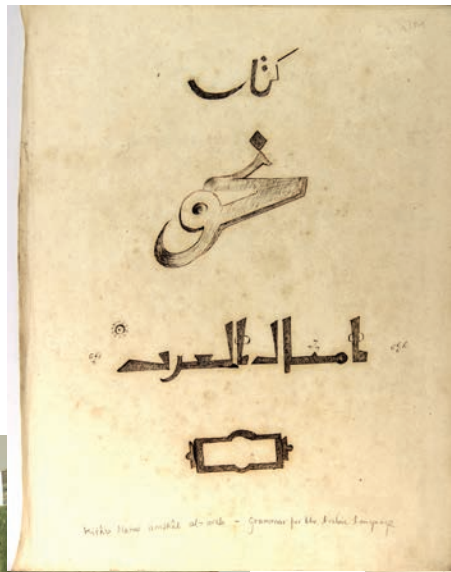 كتاب
نحو
امثال العرب
amthâl al-arab - Grammar for the Arabic Language